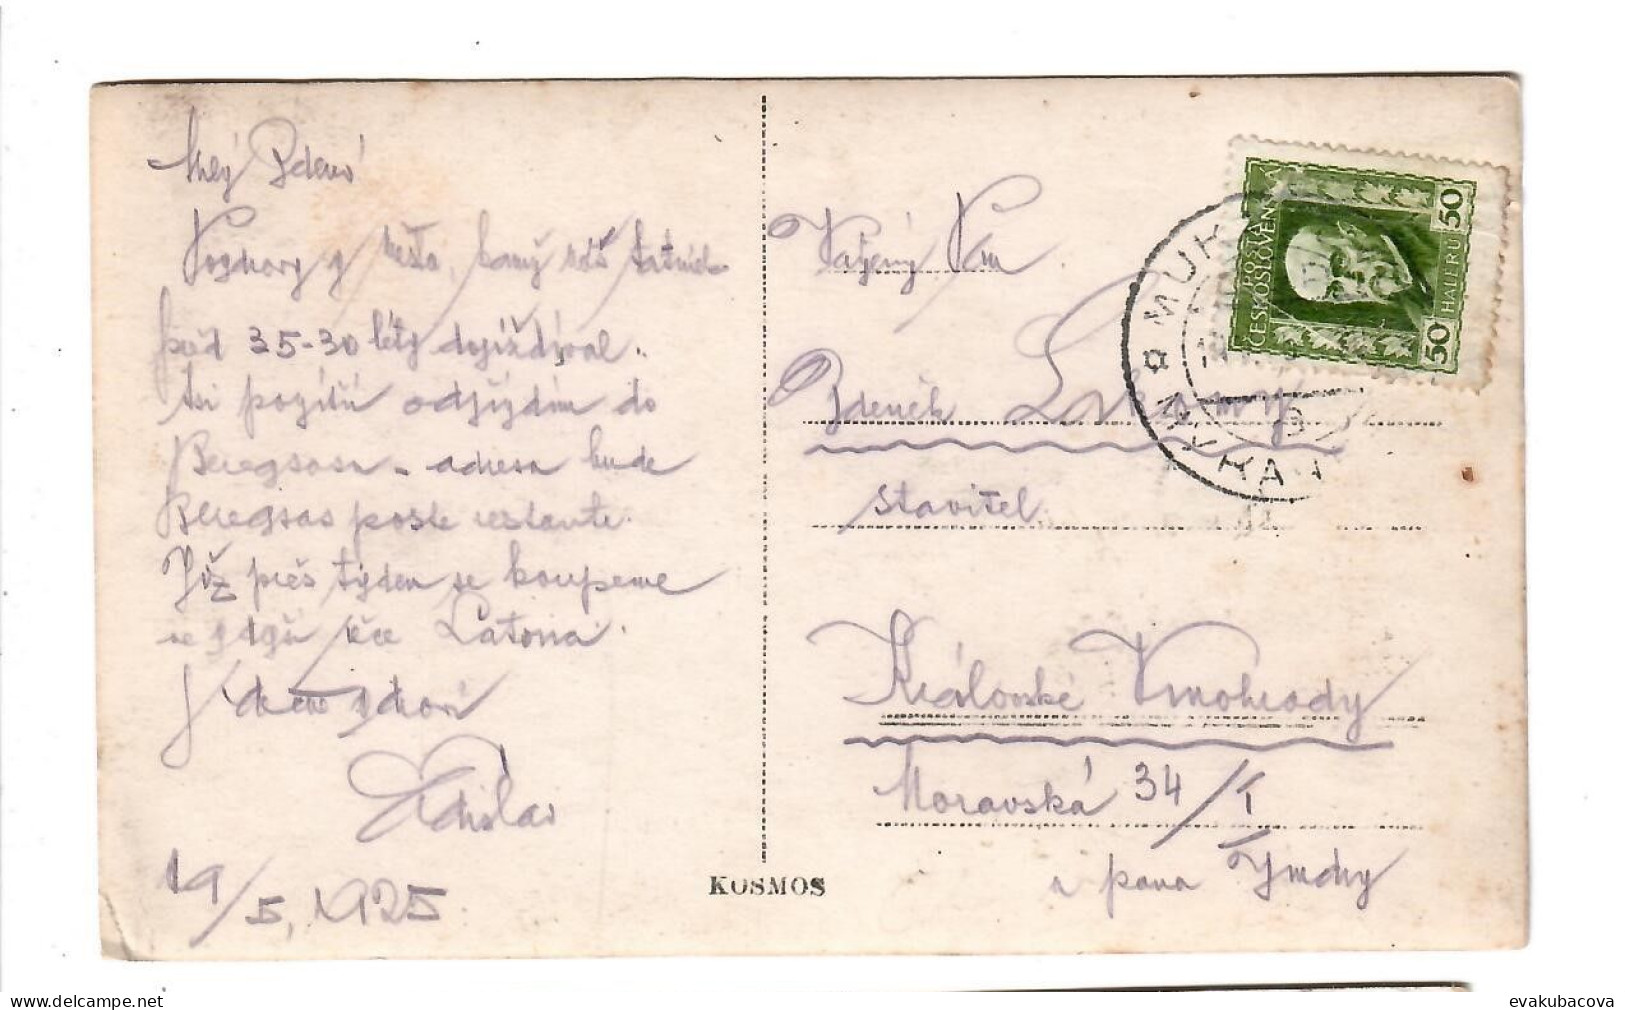 Milý Zdenó
Pozdravy z města, kamž náš tatínek
před 35-30 léty dojížďjval.
tsi pozítří odjíždím do
Beregsasu - adresa bude
Beregsas poste restante.
Již přes týden se koupeme
ve zdejší řece Latorica.
Srdečně zdraví
Ladislav
19/5. 1925
KOSMOS
Vážený Pán
Zdeněk
stavitel
Královské Vinohrady
Moravská 34/I
u pana
POŠTA
ČESKOSLOVENSKÁ
50 HALÉŘŮ 50